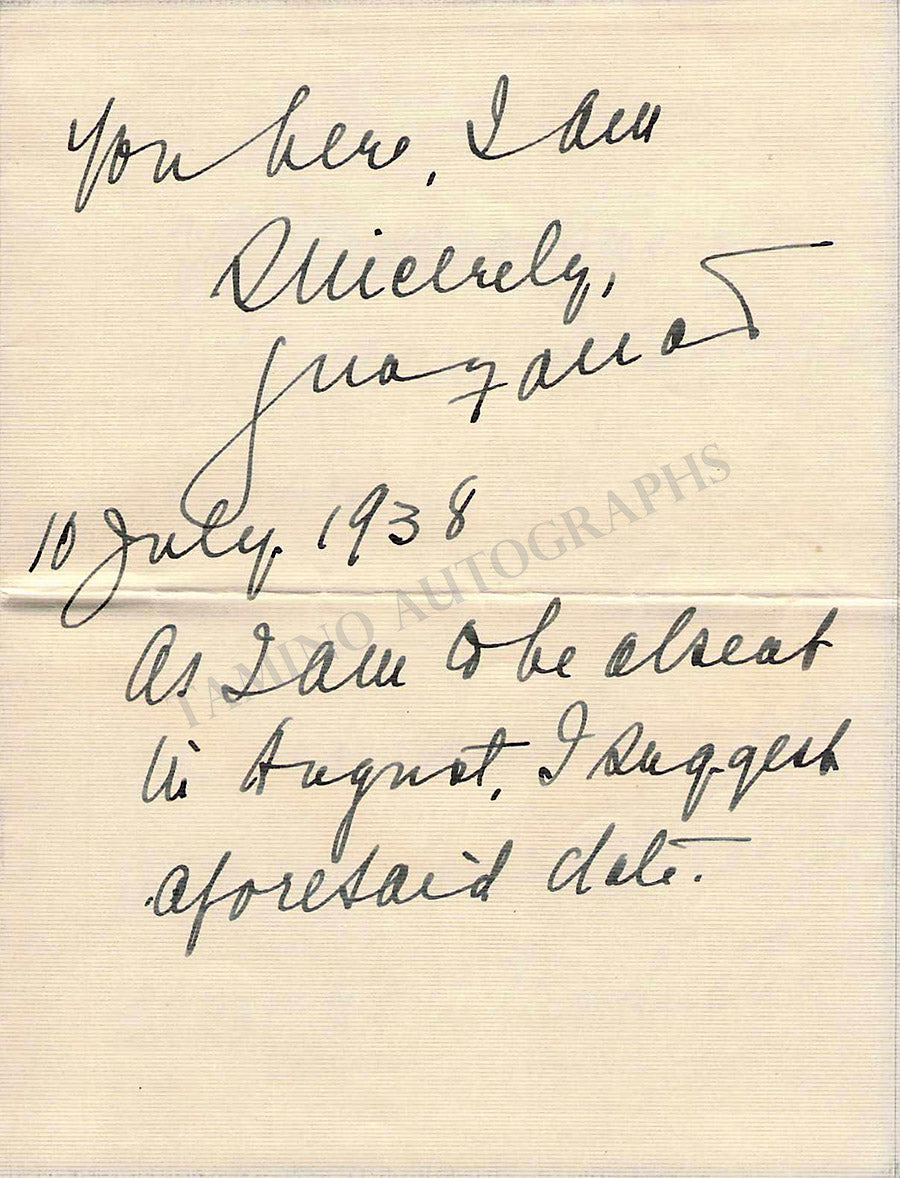 you here, I am
Sincerely,
10 July. 1938
As I am to be absent
in August, I suggest
aforesaid date.
TAMINO AUTOGRAPHS